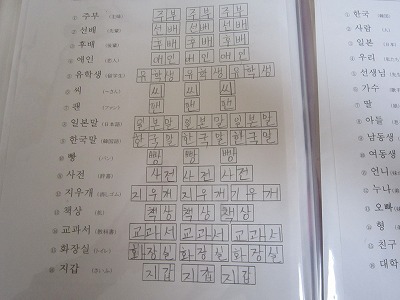 ① 주부 (主婦) 주부 주부 주부
② 선배 (先輩) 선배 선배 선배
③ 후배 (後輩) 후배 후배 후배
④ 애인 (恋人) 애인 애인 애인
⑤ 유학생 (留学生) 유학생 유학생 유학생
⑥ 씨 (〜さん) 씨 씨 씨
⑦ 팬 (ファン) 팬 팬 팬
⑧ 일본말 (日本語) 일본말 일본말 일본말
⑨ 한국말 (韓国語) 한국말 한국말 한국말
⑩ 빵 (パン) 빵 빵 빵
⑪ 사전 (辞書) 사전 사전 사전
⑫ 지우개 (消しゴム) 지우개 지우개 기우개
⑬ 책상 (机) 책상 책상 책상
⑭ 교과서 (教科書) 교과서 교과서 교과서
⑮ 화장실 (トイレ) 화장실 화장실 화장실
⑯ 지갑 (さいふ) 지갑 지갑 지갑
① 한국 (韓国)
② 사람 (人)
③ 일본 (日本)
④ 우리
⑤ 선생님
⑥ 가수
⑦ 딸
⑧ 아들
⑨ 남동생
⑩ 여동생
⑪ 언니
⑫ 누나
⑬ 오빠
⑭ 형
⑮ 친구
⑯ 대학